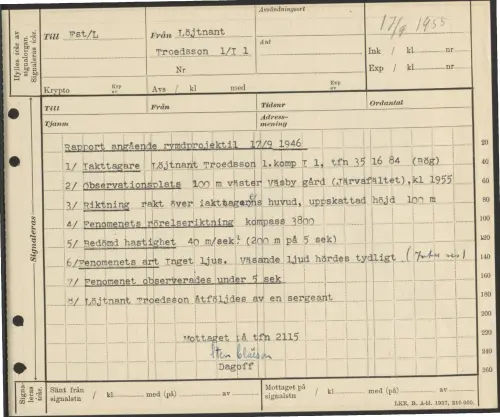 Användningsort
17/9 1955
Till Fst/L Från Löjtnant
Troedsson 1/I 1
Ant
Nr
Ink / kl nr
Exp / kl nr
Hylles icke av signalorgan.
Signaleras icke.
Krypto Krp av Avs / kl med Exp av
Till Från Tidsur Ordantal
Tjanm Adress-mening
Rapport angående rymdprojektil 17/9 1946
1/ Iakttagare Löjtnant Troedsson 1.komp I 1, tfn 35 16 84 (Bög)
2/ Observationsplats 100 m väster Väsby gård (Järvafältet),kl 1955
3/ Riktning rakt över iakttagarens huvud, uppskattad höjd 100 m
4/ Fenomenets rörelseriktning kompass 3800
5/ Bedömd hastighet 40 m/sek! (200 m på 5 sek)
6/Fenomenets art Inget ljus. Väsande ljud hördes tydligt
7/ Fenomenet observerades under 5 sek
8/ Löjtnant Troedsson åtföljdes av en sergeant
Mottaget på tfn 2115
Dagoff
Signaleras
20
40
60
80
100
120
140
160
180
200
220
240
360
Signaleras icke.
Sänt från signalstn / kl med (på) av
Mottaget på signalstn / kl med (på) av
LKE, B. A-td. 1937, 315 000.